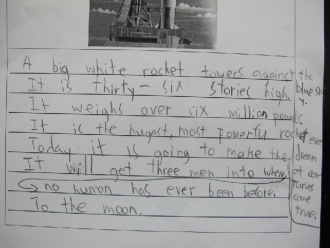 A big white rocket towers against the blue sky.
It is thirty-six stories high.
It weighs over six million pounds.
It is the hugest, most powerful rocket ever
Today it is going to make the dream of centuries come true.
It will get three men into where
no human has ever been before.
To the moon.